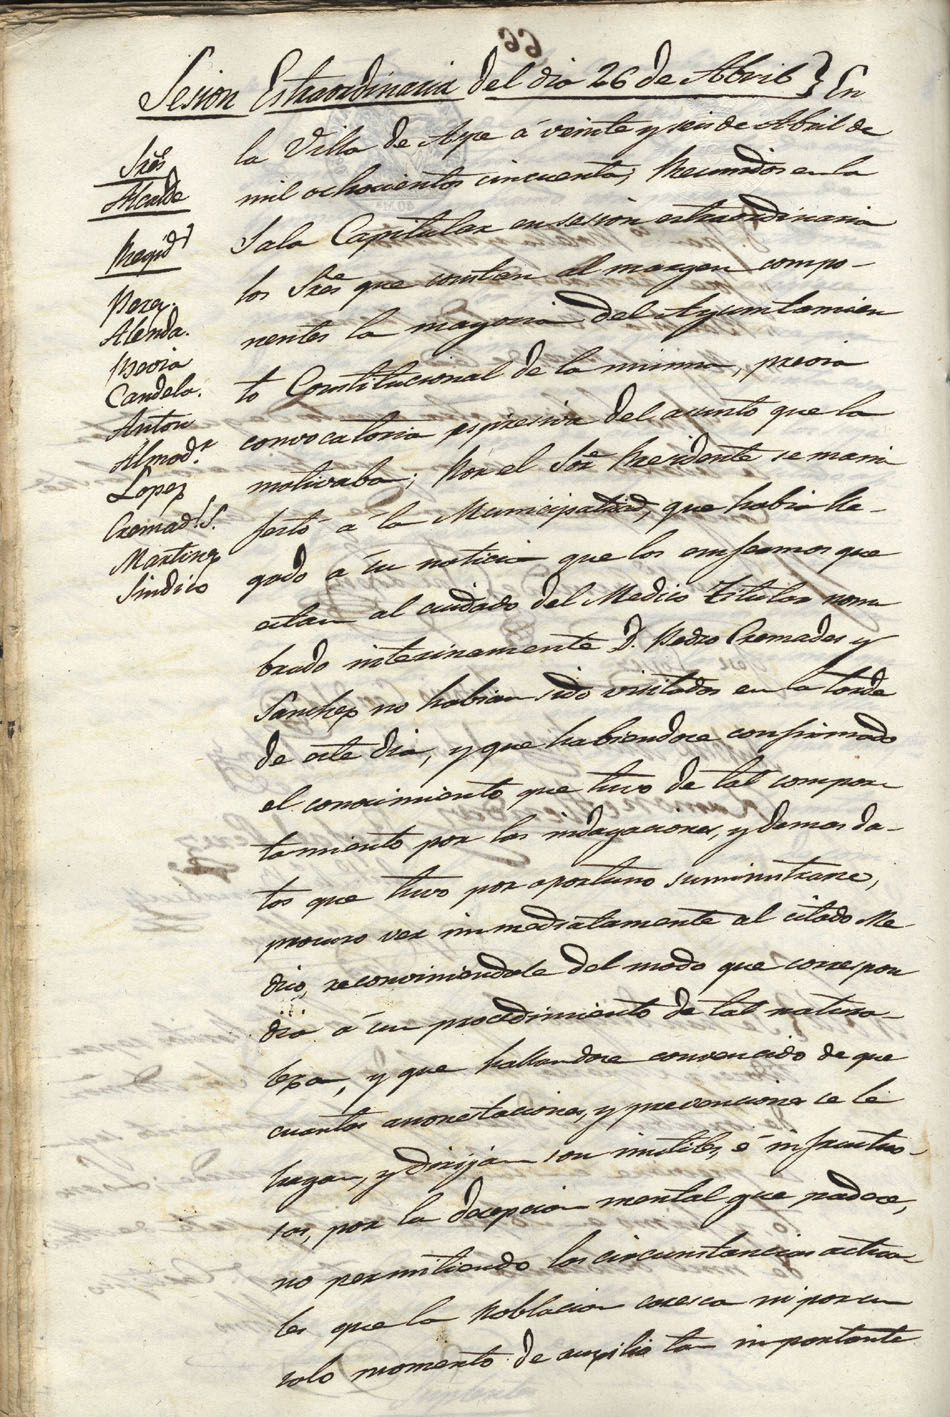 Sesion Estraordinaria del dia 26 de Abril } En
la Villa de Aspe á veinte y seis de Abril de
mil ochocientos cincuenta; Reunidos en la
Sala Capitular en sesion estraordinaria
los Sres que constan al margen compo-
nentes la mayoria del Ayuntamien
to Constitucional de la misma, previa
convocatoria espresiva del asunto que la
motivaba; Por el Sor Presidente se mani
festó á la Municipalidad, que habia lle-
gado á su noticia que los enfermos que
estan al cuidado del Medico Titular nom
brado interinamente D. Pedro Cremades y
Sanchez no habian sido visitados en la tarde
de este dia, y que habiendose confirmado
el conocimiento que tuvo de tal compor
tamiento por las indagaciones, y demas da-
tos que tuvo por oportuno suministrarse,
procuro ver inmediatamente al citado Me-
dico, reconviniendole del modo que correspon
dia á un procedimiento de tal natura-
leza, y que hallandose convencido de que
cuantas amonestaciones, y prevenciones se le
hagan, y dirijan son inutiles, é infructuo-
sas, por la decepcion mental que padece,
no permitiendo las circunstancias actua
les que la Poblacion caresca ni por un
solo momento de auxilio tan importante
Sres
Alcalde
Regid.s
Perez.
Alenda.
Pavia
Candela.
Anton
Almod.r
Lopez
Cremad.s S.
Martinez
Sindico
66